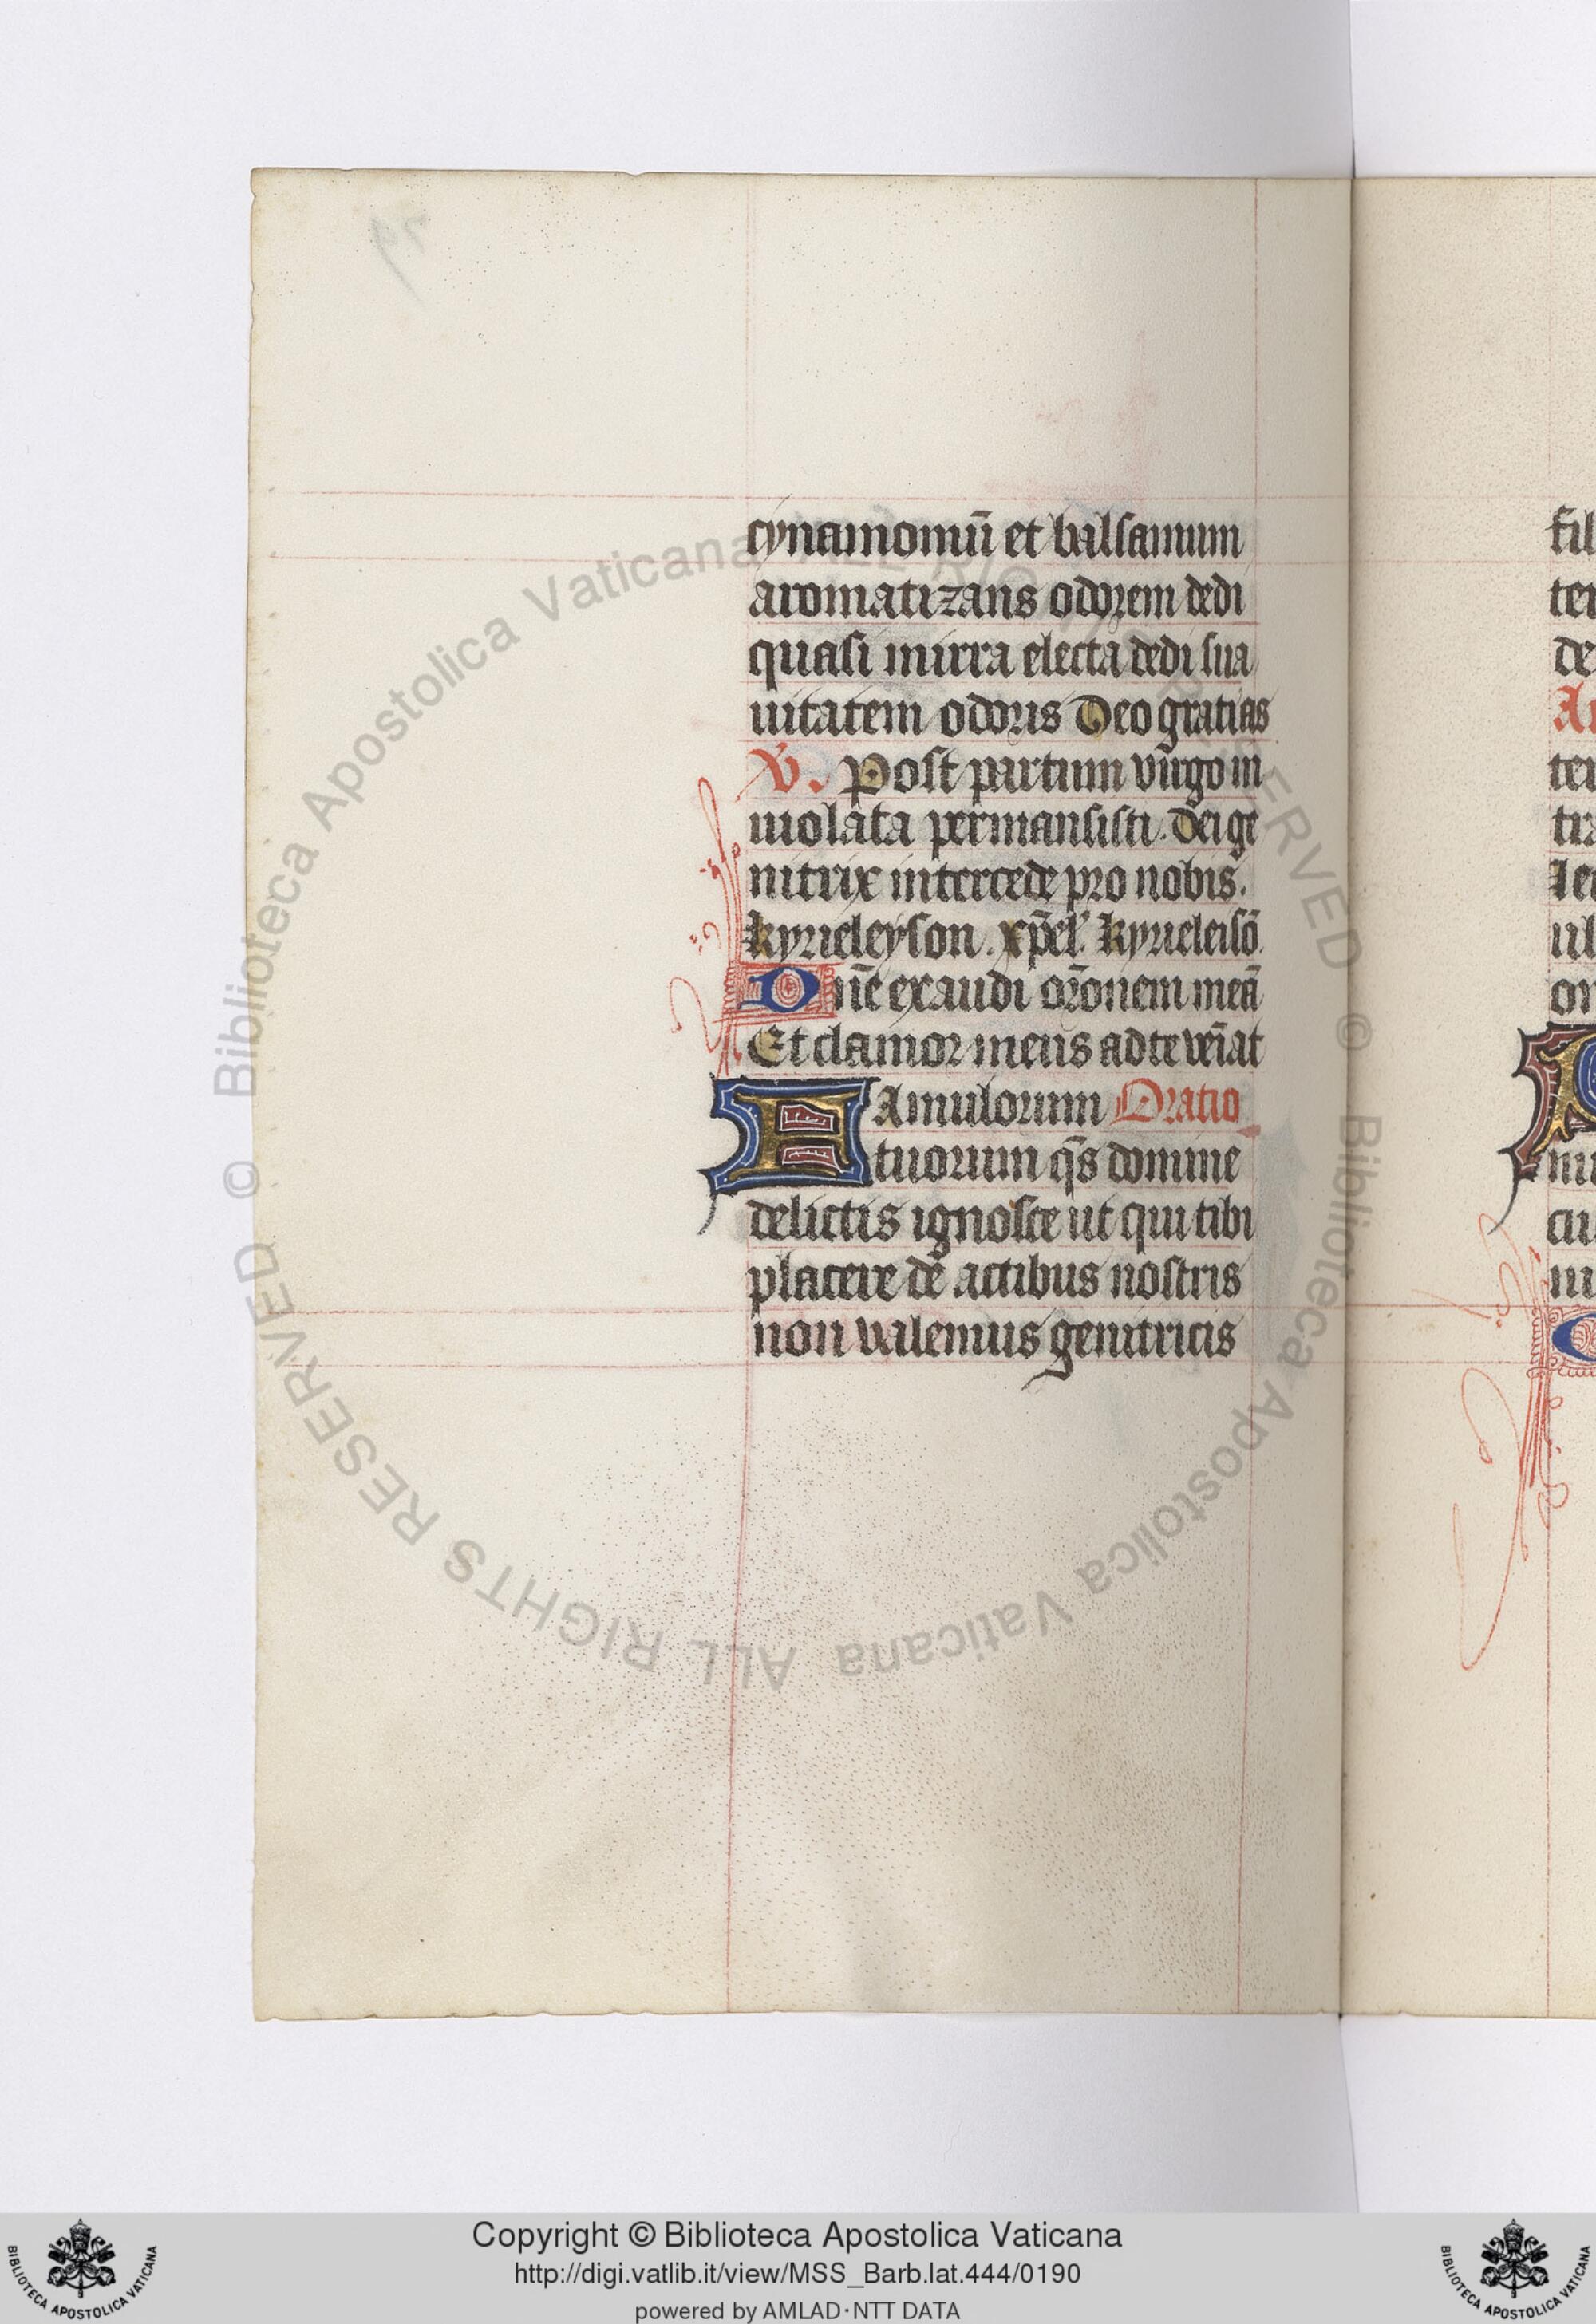 cynamomū et balsamum
aromatizans odorem dedi
quasi mirra electa dedi sua
uitatem odoris Deo gratias
V. Post partum virgo in
uiolata permansisti. dei ge
nitrix intercede pro nobis.
kyrieleyson. xp̄el'. kyrieleisō.
Dn̄e exaudi or̄onem meā
Et clamor meus ad te veīat
FAmulorum Oratio
tuorum qs̄ domine
delictis ignosce ut qui tibi
placere de actibus nostris
non valemus genitricis
fil
ter
de
A
ter
tra
ul
or
cu
© Biblioteca Apostolica Vaticana ALL RIGHTS RESERVED © Biblioteca Apostolica Vaticana ALL RIGHTS RESERVED
Copyright © Biblioteca Apostolica Vaticana
http://digi.vatlib.it/view/MSS_Barb.lat.444/0190
powered by AMLAD·NTT DATA
BIBLIOTECA APOSTOLICA VATICANA
BIBLIOTECA APOSTOLICA VATICANA